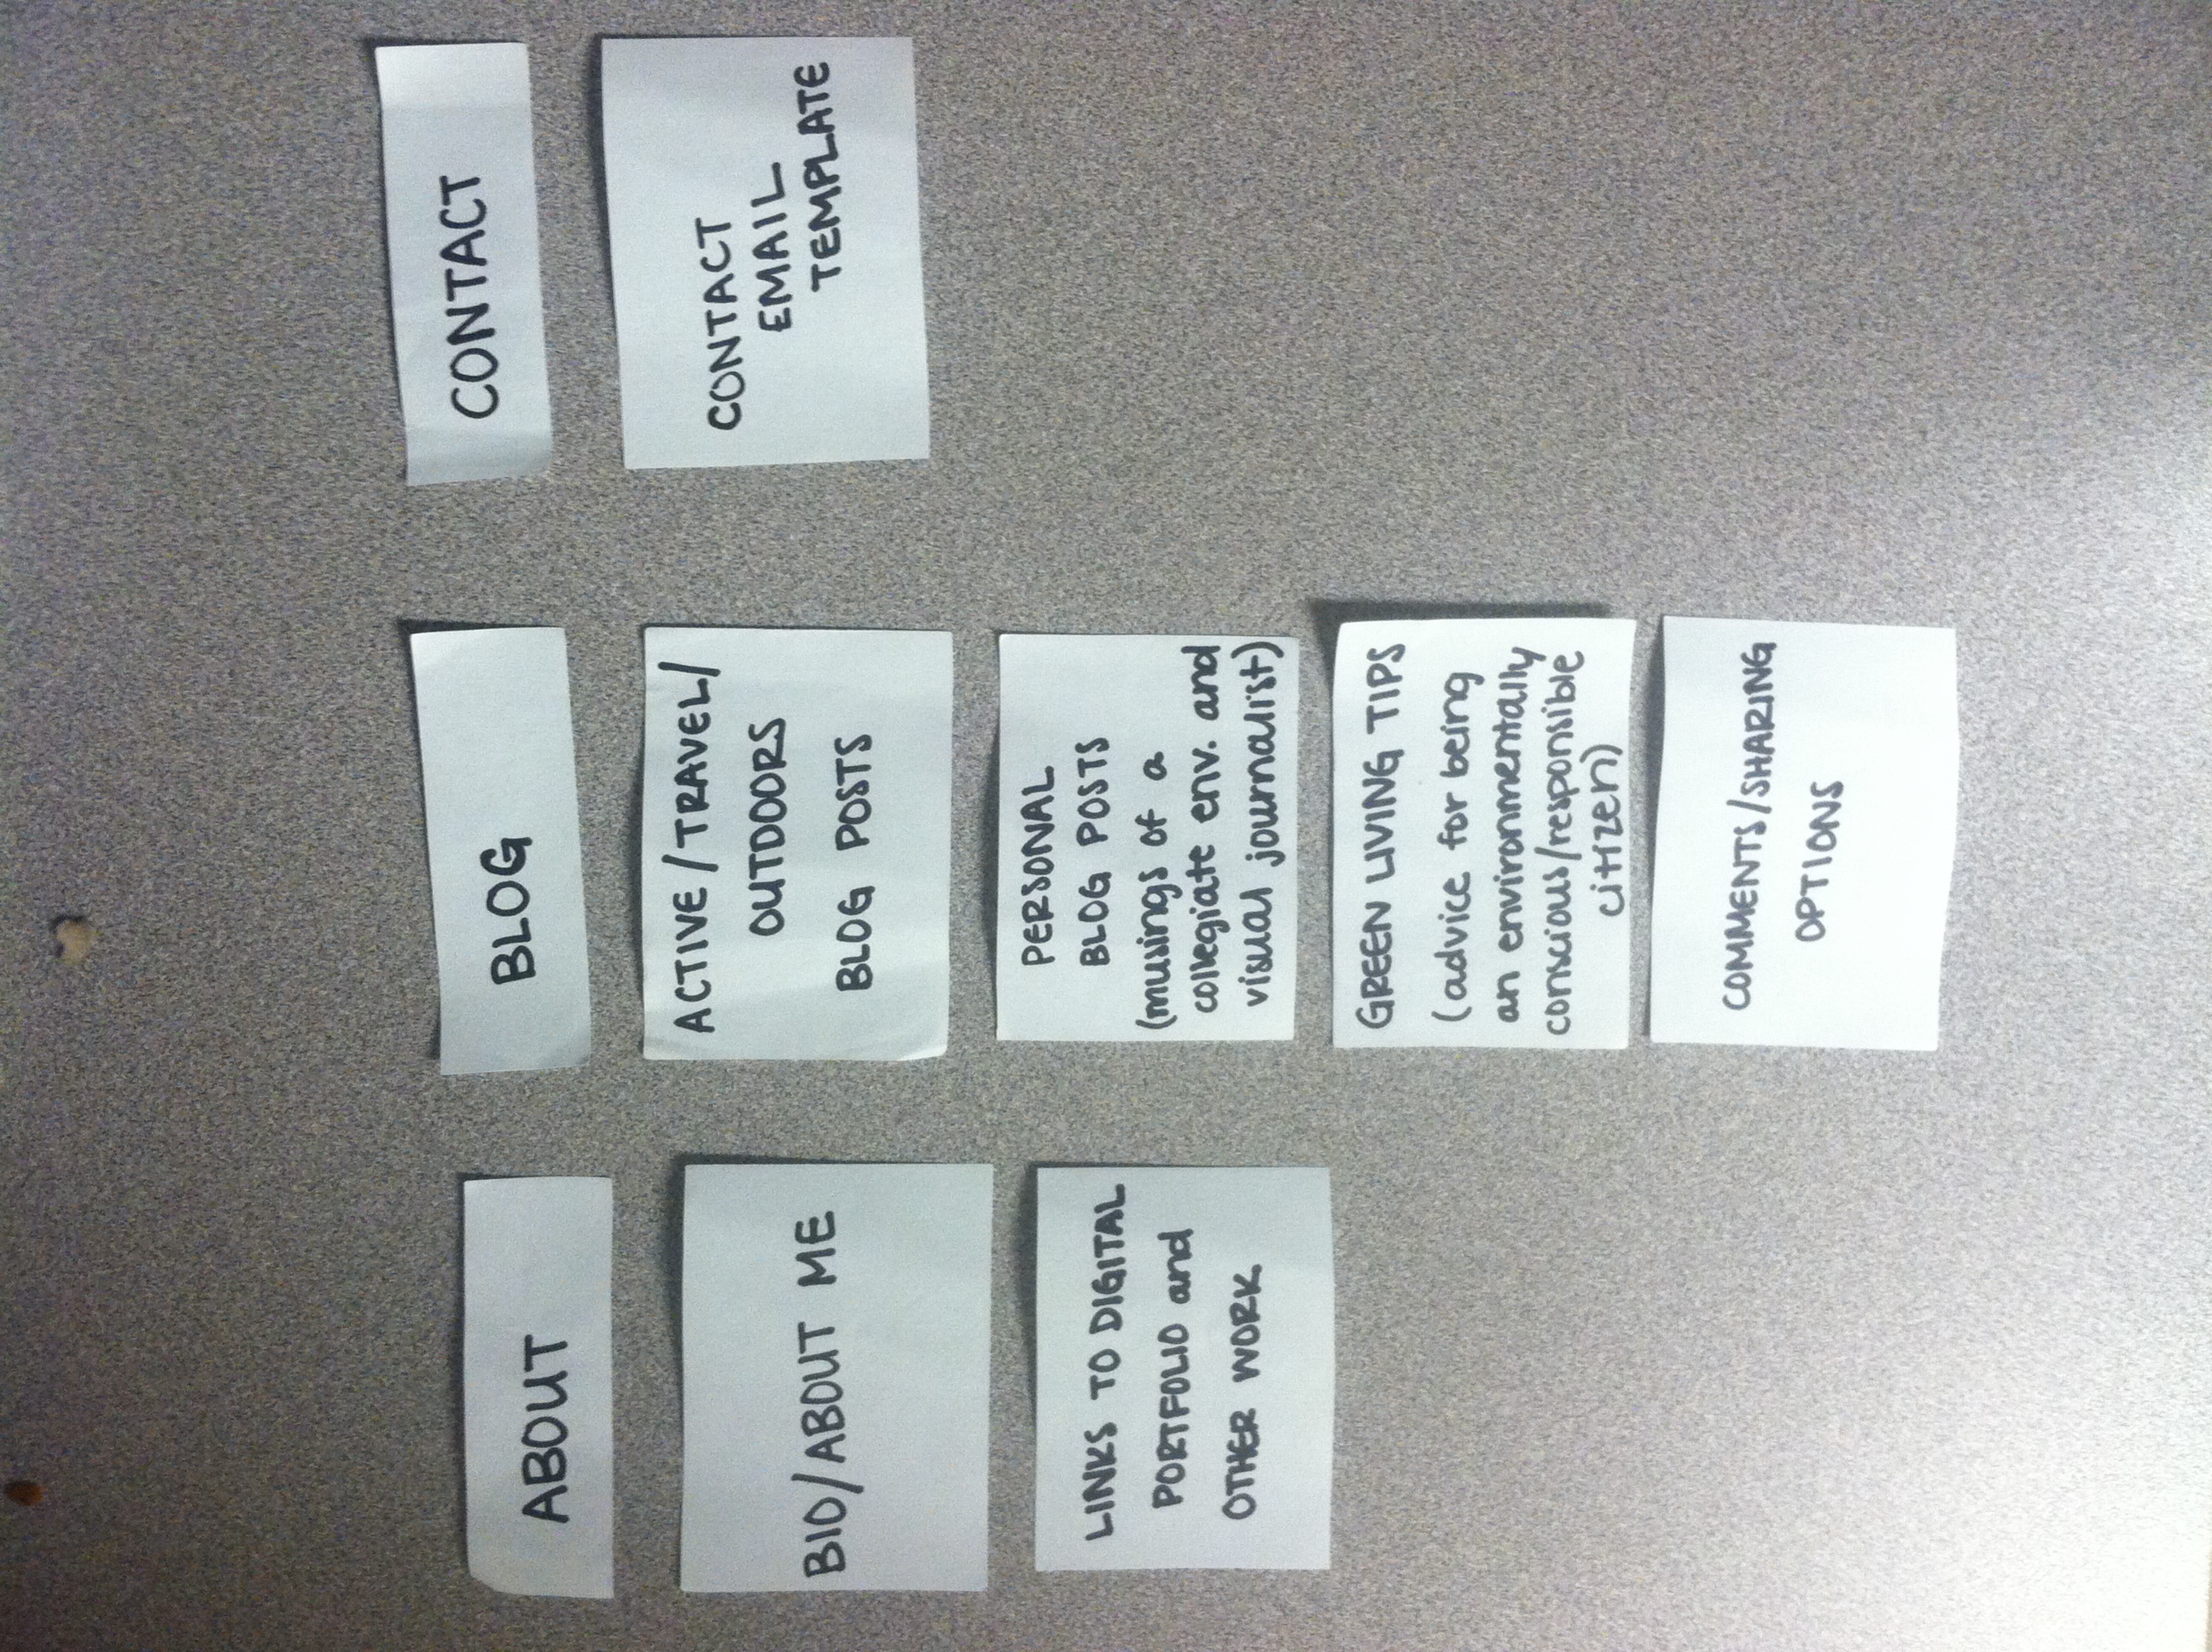 ABOUT
BIO/ABOUT ME
LINKS TO DIGITAL
PORTFOLIO and
OTHER WORK
BLOG
ACTIVE/TRAVEL/
OUTDOORS
BLOG POSTS
PERSONAL
BLOG POSTS
(musings of a
collegiate env. and
visual journalist)
GREEN LIVING TIPS
(advice for being
an environmentally
conscious/responsible
citizen)
COMMENTS/SHARING
OPTIONS
CONTACT
CONTACT
EMAIL
TEMPLATE